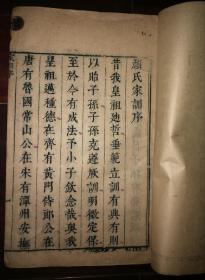 顏氏家訓序
昔我皇祖迪哲垂範立訓有典有則
以貽子孫子孫克遵厥訓明徵定保
至於今有成法予小子欽念哉與我
皇祖邁種德在齊有黃門侍郎公在
唐有魯國常山公在宋有潭州安撫